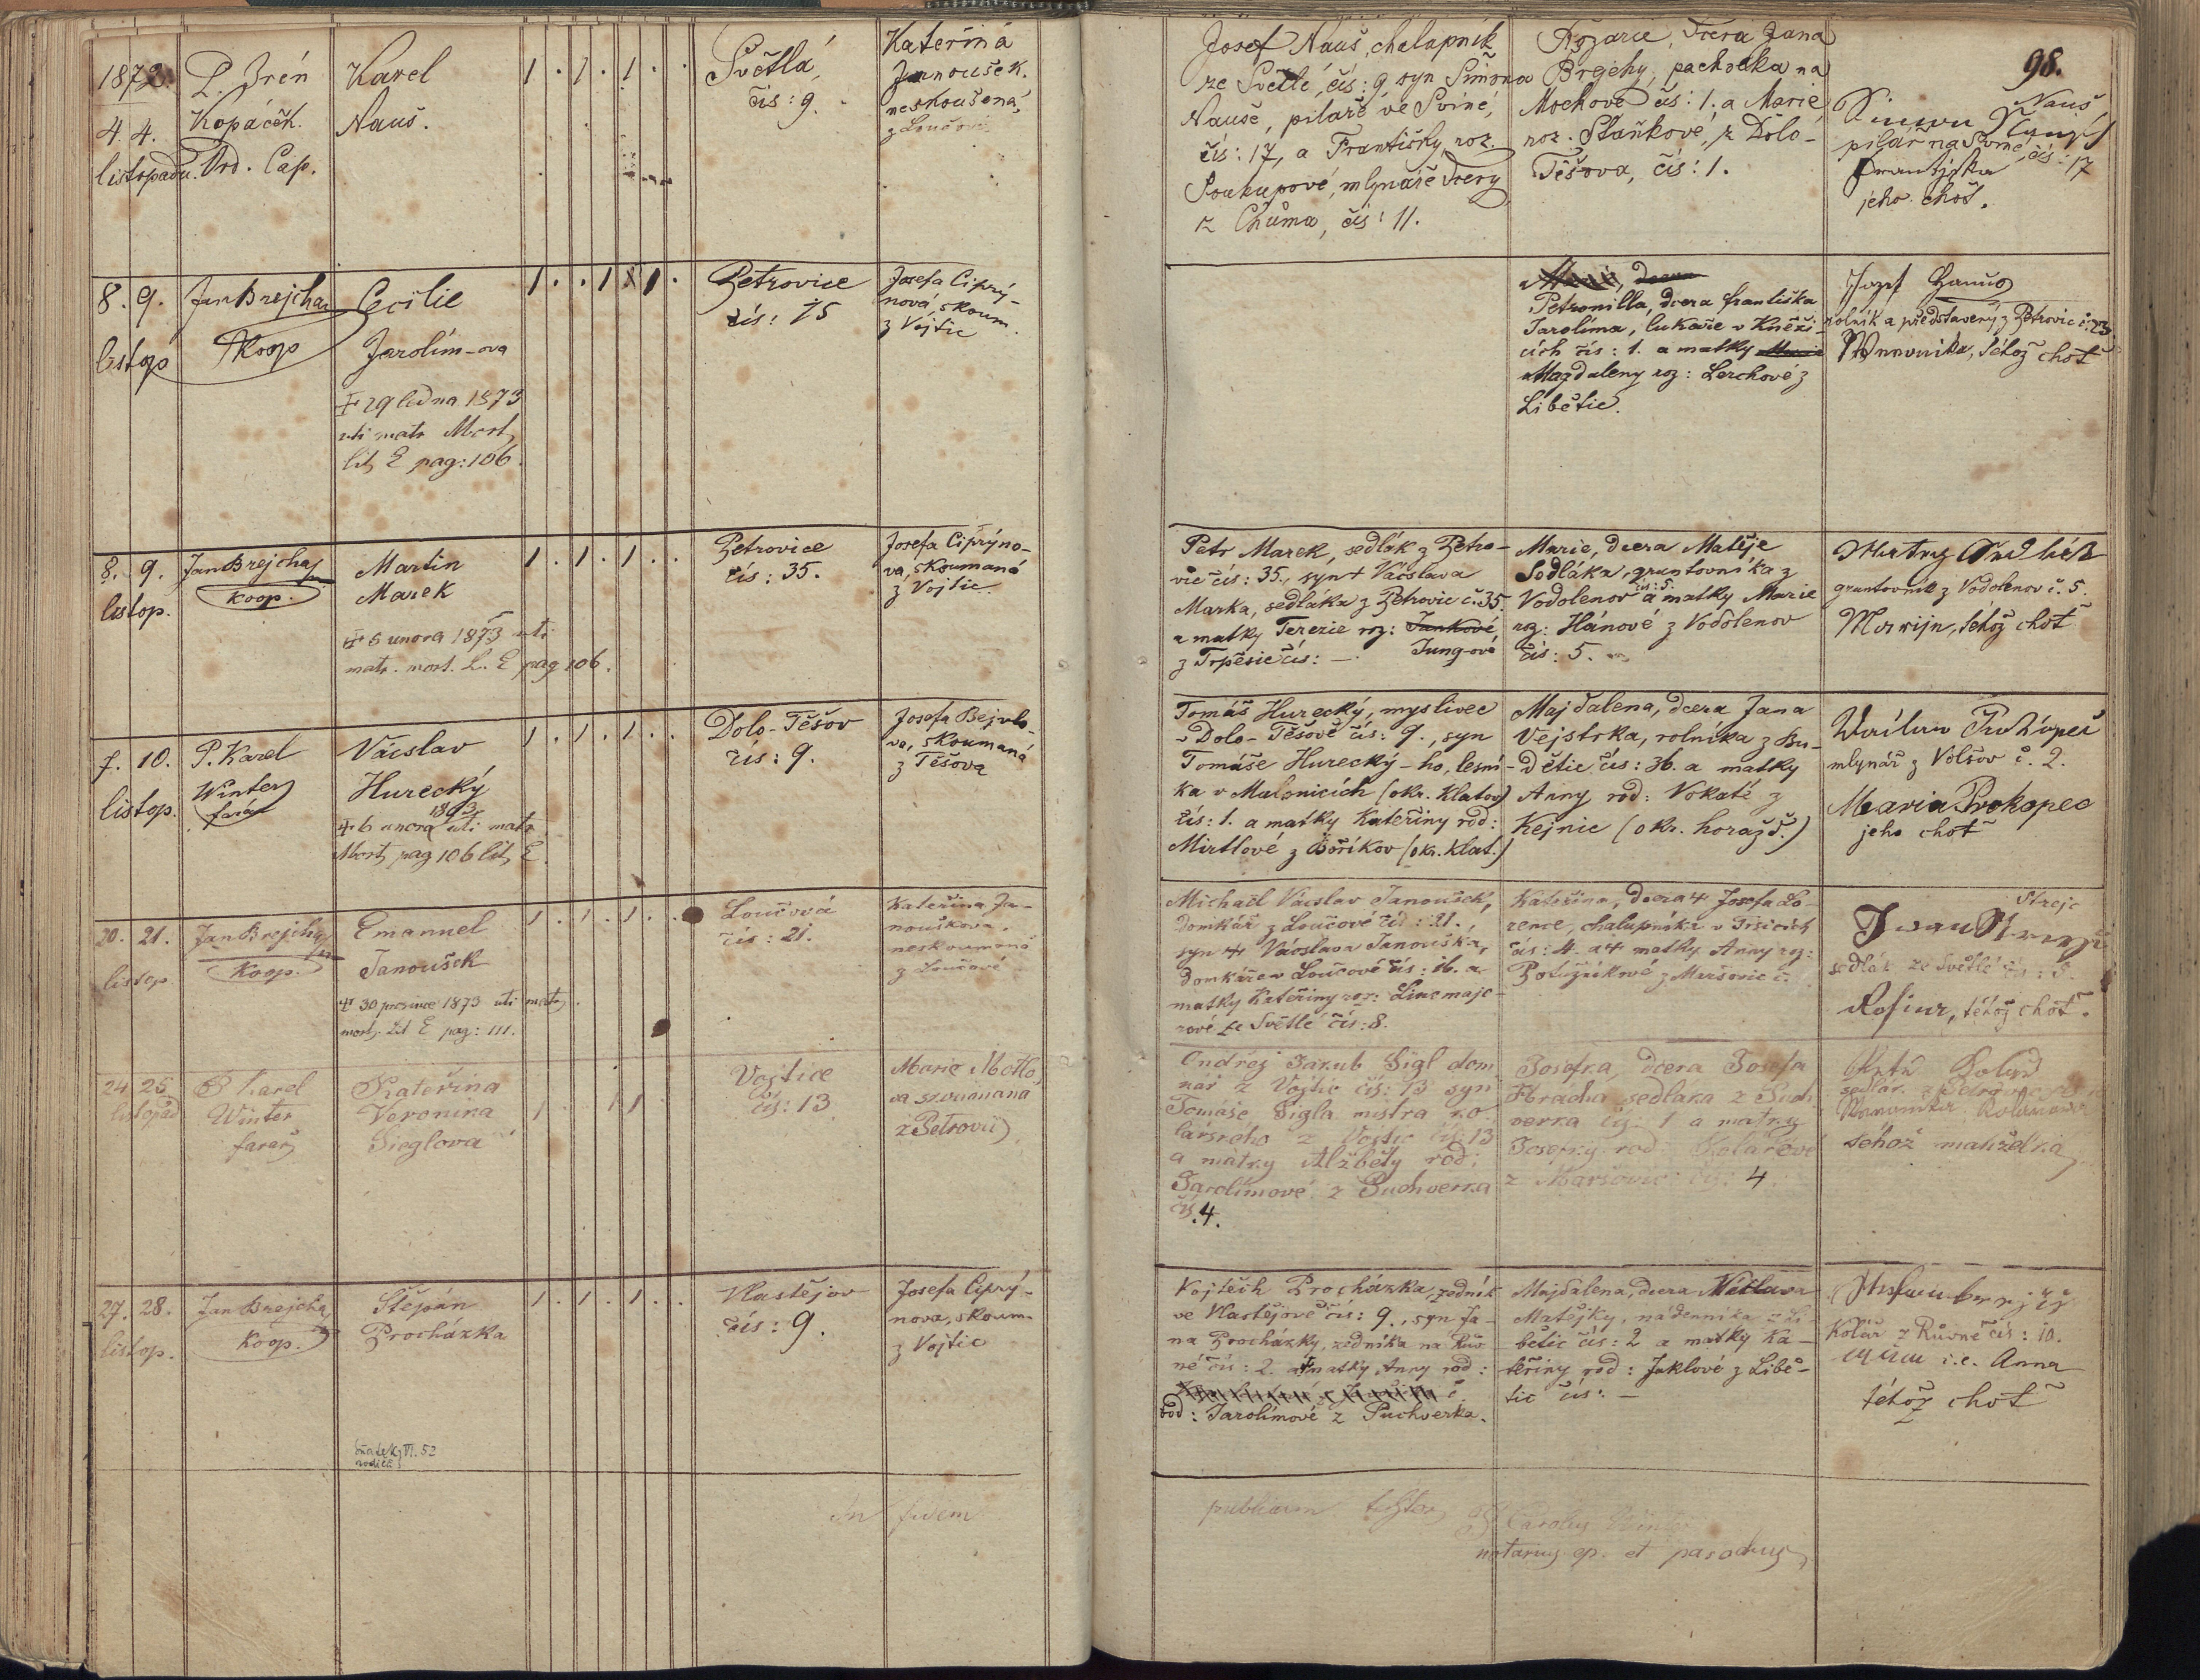 98.
1872.
4. 4.
listopadu.
P. Irén
Kopáček.
Ord. Cap.
Karel
Nauš.
1 . 1 . 1 . .
Světlá,
čís: 9.
Kateřina
Janoušek.
neskoušená,
z Loučové
Josef Nauš, chalupník
ze Světlé, čís: 9 syn Šimona
Nauše, pilaře ve Sviné,
čís: 17, a Františky, roz.
Soukupové, mlynáře dcery
z Chůma, čís: 11.
Rozarie, dcera Jana
Brejchy, pachtéka na
Mochově čís: 1. a Marie
roz. Staňkové, z Dolo-
Těšova, čís: 1.
Nauš
pilář na Sviné, čís: 17
Frantiska
jeho choť.
8. 9.
listop
Jan Brejcha
Koop
Cecilie
Jarolím-ova
29 ledna 1873
uti matr Mort
lit E pag: 106.
1 . . 1 1 .
Petrovice
čís: 75
Josefa Ciprý-
nová, skoum.
z Vojtic
Petronilla, dcera františka
Jarolíma, lukaře v Kněži-
cích čís: 1. a matky
Magdaleny roz: Lerchové z
Liběťic.
Jozef Hanuš
rolník a představený z Petrovic č. 23
Weronika, téhož choť
8. 9.
listop.
Jan Brejcha
Koop.
Martin
Marek
6 unora 1873 uti
matr. mort. L. E pag 106.
1 . 1 . 1 . .
Petrovice
čís: 35.
Josefa Ciprýno-
va, skoumaná
z Vojtic.
Petr Marek, sedlák z Petro-
vic čís: 35., syn + Václava
Marka, sedláka z Petrovic č. 35.
a matky Terezie roz: Junkové
z Trpěsic čís: — Jung-ové
Marie, dcera Matěje
Sedláka, gruntovníka z
Vodolenov čís: 5. a matky Marie
roz: Hánové z Vodolenov
čís: 5.
gruntovník z Vodolenov č. 5.
Marzijn, téhož choť
7. 10.
listop.
P. Karel
Winter
farář
Václav
Hurecký
6 unora 1873 uti matr
Mort pag 106 lit E.
1 . 1 . 1 . .
Dolo-Těšov
čís: 9.
Josefa Bejvlo-
va, skoumaná
z Těšova
Tomáš Hurecký, myslivec
v Dolo-Těšově čís: 9., syn
Tomáše Hurecký-ho, lesní-
ka v Malonicích (okr. Klatov)
čís: 1. a matky Kateřiny rod:
Mirtlové z Bořikov (okr. klat.)
Majdalena, dcera Jana
Vejstrka, rolníka z Bu-
dětic čís: 36. a matky
Anny rod: Vokaté z
Kejnic (okr. horažď.)
mlynář z Volšov č. 2.
Maria Prokopec
jeho choť
20. 21.
listop
Jan Brejcha
Koop.
Emanuel
Janoušek
30 prosince 1873 uti matr.
mort. Lit E pag: 111.
1 . 1 . 1 . .
Loučová
čís: 21.
Kateřina Ja-
nouškova,
neskoumaná
z Loučové
Michaěl Václav Janoušek,
domkář z Loučové čís: 21.,
syn + Václava Janouška,
domkáře v Loučové čís: 16. a
matky Kateřiny roz: Lincmaje-
rové ze Světlé čís: 8.
Kateřina, dcera + Josefa Lo-
rence, chalupníka v Tršicích
čís: 4. a + matky Anny roz:
Potužákové z Maršovic č.
Strejc
sedlák ze Světlé čís: 5.
Rosina, téhož choť.
24 25
listopad
P Karel
Winter
farář
Kateřina
Veronika
Sieglova
1 . 1 1
Vojtice
čís: 13
Marie Motlo
va skoumana
z Petrovic
Ondřej Jakub Sigl dom
kař z Vojtic čís: 13 syn
Tomáše Sigla mistra ko
lářského z Vojtic čís 13
a matky Alžběty rod:
Jarolímové z Puchverka
čís. 4.
Josefka, dcera Josefa
Hradia sedláka z Puch
verka čís: 1 a matky
Josefky rod Kolářové
z Maršovic čís: 4
sedlák z Petrovic
téhož manželka
27. 28.
listop.
Jan Brejcha
Koop.
Štěpán
Procházka
1 . 1 . 1 . .
Vlastějov
čís: 9.
Josefa Ciprý-
nova, skoum.
z Vojtic
Vojtěch Procházka, zedník
ve Vlastějově čís: 9., syn Ja-
na Procházky, zedníka na Rův
né čís: 2. a matky Anny rod:
rod: Jarolímové z Puchverka.
Majdalena, dcera Václava
Matějky, nádenníka z Li-
bětic čís: 2 a matky Ka-
teřiny rod: Jaklové z Libě-
tic čís: —
Kolář z Růvné čís: 10.
i.e. Anna
téhož choť
Sňatek VI. 52
rodičů
In fidem
publicam
P Carolus Winter
notarius ep. et parochus